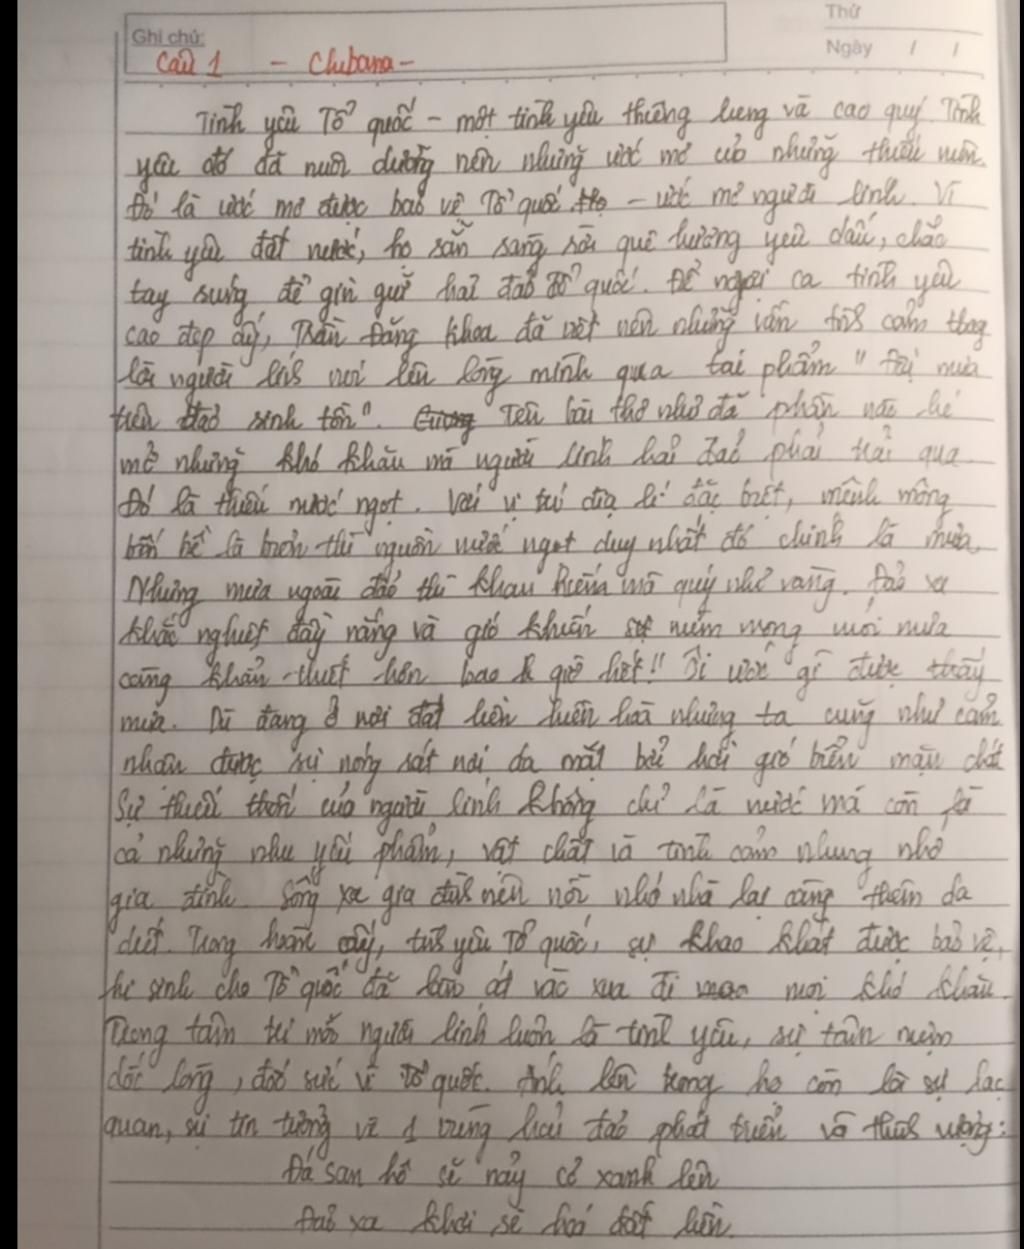 Thứ
Ghi chú:
Ngày / /
Câu 1 - Chubana -
Tình yêu Tổ quốc - một tình yêu thiêng liêng và cao quý. Tình
yêu đó đã nuôi dưỡng nên những ước mơ của những thiếu niên.
Đó là ước mơ được bảo vệ Tổ quốc - ước mơ người lính. Vì
tình yêu đất nước, họ sẵn sàng rời quê hương yêu dấu, chắc
tay súng để gìn giữ hải đảo Tổ quốc. Để ngợi ca tình yêu
cao đẹp ấy, Trần Đăng Khoa đã viết nên những vần thơ cảm thay
lời người lính nơi lên lòng mình qua tác phẩm " Đợi mưa
trên đảo sinh tồn". Tên bài thơ như đã phần nào hé
mở những khó khăn mà người lính hải đảo phải trải qua
Đó là thiếu nước ngọt. Với vị trí địa lí đặc biệt, mênh mông
bốn bề là biển thì nguồn nước ngọt duy nhất đó chính là mưa.
Nhưng mưa ngoài đảo thì khan hiếm mà quý như vàng. Đảo xa
khắc nghiệt đầy nắng và gió khiến sự niềm mong mỏi mưa
càng khẩn thiết hơn bao giờ hết!! Ôi ước gì được thấy
mưa. Dù đang ở nơi đất liền nhưng ta cũng như cảm
nhận được sự nóng rát nơi da mặt bởi hơi gió biển mặn chát
Sự thiếu thốn của người lính không chỉ là nước mà còn là
cả những nhu yếu phẩm, vật chất và tình cảm nhung nhớ
gia đình. Sống xa gia đình nên nỗi nhớ nhà lại càng thêm da
diết. Trong hoàn cảnh ấy, tình yêu Tổ quốc, sự khao khát được bảo vệ,
hi sinh cho Tổ quốc đã lấn át và xua đi mọi khó khăn.
Trong tâm trí mỗi người lính luôn là tình yêu, sự tâm niệm
dốc lòng, dốc sức vì Tổ quốc. Ánh lên trong họ còn là sự lạc
quan, sự tin tưởng về 1 vùng hải đảo phát triển và thịnh vượng:
Đá san hô sẽ nảy cỏ xanh lên
Đảo xa khơi sẽ hoá đất liền.